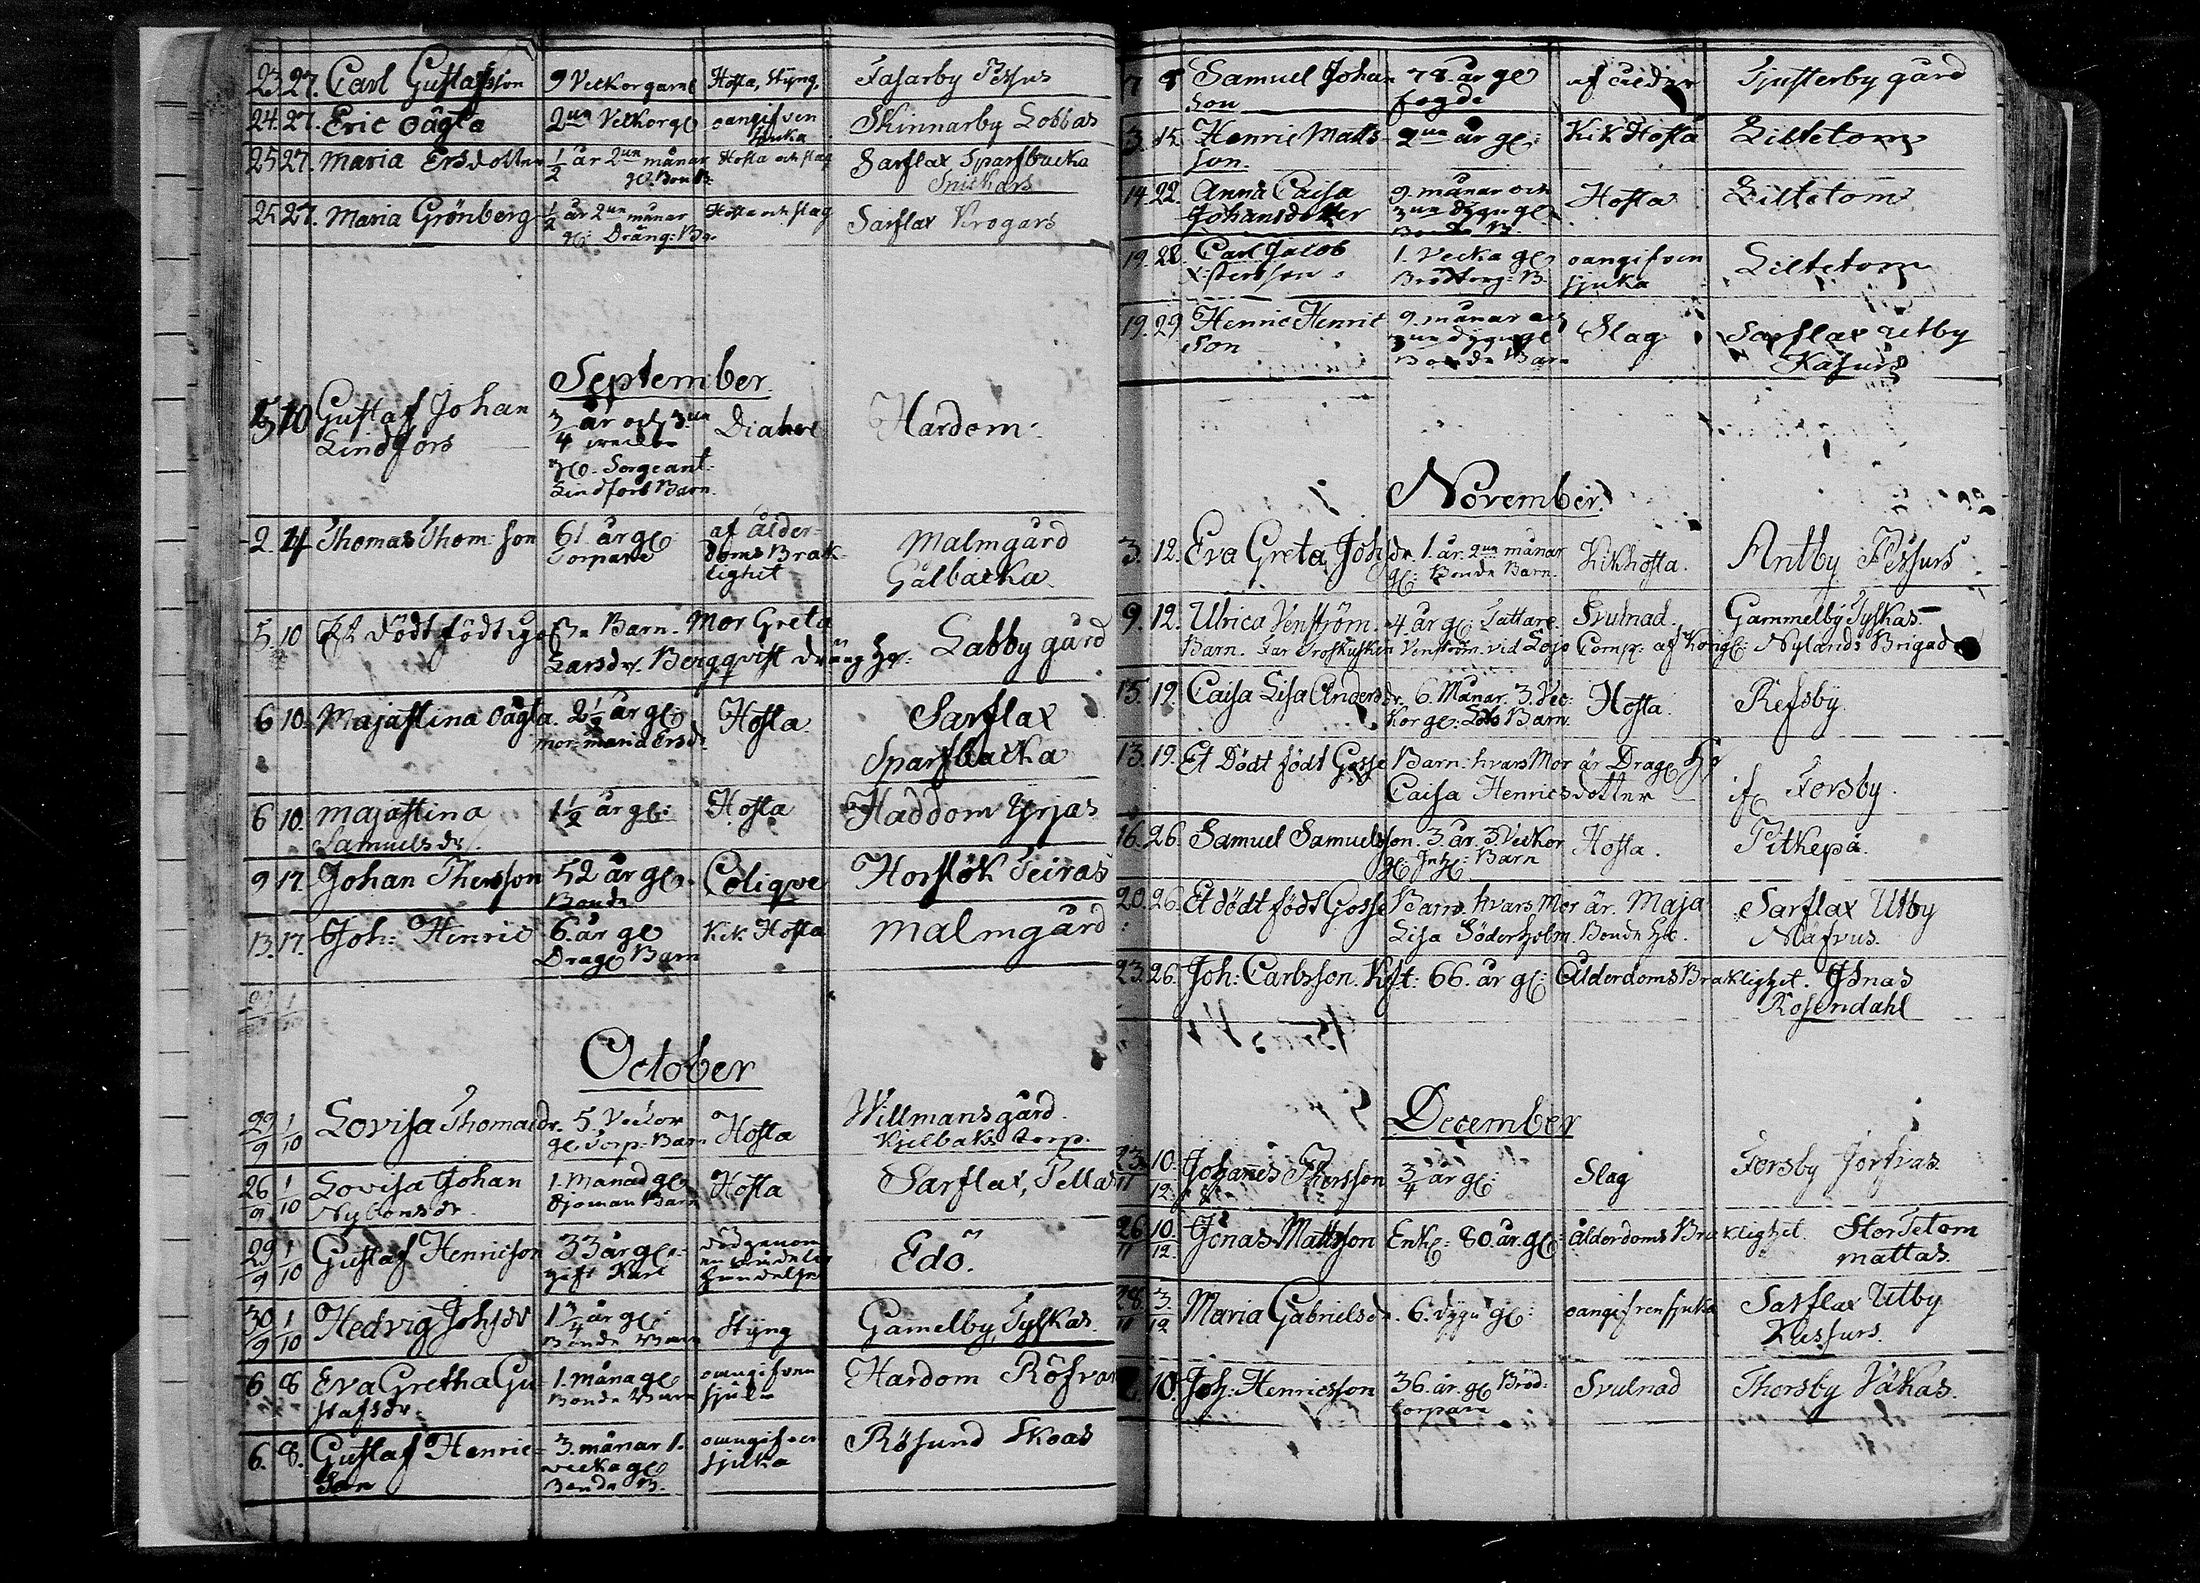 23 27. Carl Gustafsson 9 Veckor gaml Hosta, Styng. Tasarby Pessus
24. 27. Eric Oägta 2ne Veckor gl oangifven sjuka Skinnarby Lobbas
25 27. Maria Ersdotter 1/2 år 2ne månar gl. Bond B. Hosta och slag Sarflax Sparfbacka Snickars
25 27. Maria Grönberg 1/2 år 2ne månar gl: Dräng: Ba. Hosta och slag Sarflax Krogars
September
5 10 Gustaf Johan Lindfors 3/4 år och 3ne veckor gl. Sergeant Lindfors Barn Hardom
2. 14 Thomas Thom: son 61 år gl: Torpare af ålderdoms Bräklighet Malmgård Galbacka
5. 10 Ett Dödt födt gosse Barn. Mor Greta Larsdr. Bergqvist dräng H: Labby gård
6 10. Majastina oägta 2 1/2 år gl: mor: maria Ersdr Hosta Sarflax Sparfbacka
6 10. Majastina Samuelsdr. 1 1/2 år gl: Hosta Haddom Yrjas
9 17. Johan Thersson 52 år gl. Bonde Colique Horslök Teiras
13. 17. Joh: Henric 6. år gl Drag. Barn Kik Hosta Malmgård
October
29/9 1/10 Lovisa Thomasdr. 5. Veckor gl. Torp. Barn Hosta Willmansgård Kjelbacks torp.
26/9 1/10 Lovisa Johan Nylandsdr 1. Månad gl. Sjöman Barn Hosta Sarflax, Pellas
29/9 1/10 Gustaf Henricson 33 år gl: gift Karl död genom en händelse Edö.
30/9 1/10 Hedvig Johsdr 1 3/4 år gl: Bonde Barn Styng Gamelby, Tyskas
6. 8 Eva Gretha Gustafsdr. 1. måna gl. Bonde Barn oangifven sjuka Hardom Röfvar
6. 8. Gustaf Henricson 3. månar 1. vecka gl. Bonde B. oangifven sjuka Rösund Skoas
7 8 Samuel Johanson 78. år gl fogde af ålder Tjusterby gård
3. 15. Henric Mattsson. 2ne år gl: Kik Hosta Liltetom
14. 22. Anna Caisa Johansdotter 9. månar och 3ne dygn gl Bonde B. Hosta Liltetom
19. 22. Carl Jacob Xstersson. 1. Vecka gl. Brödtorp: B. oangifven sjuka Liltetom
19. 29. Henric Henricson 9. månar och 3ne dygn gl Bonde Barn Slag Sarflax Utby Kasurs
November.
3. 12. Eva Greta Johsdr 1. år. 2ne månar gl: Bonde Barn. Kikhosta. Antby Pessurs
9. 12. Ulrica Venström. 4. år gl: Tattare Svulnad. Gammelby Tyskas
Barn. Far Trosskusken Venström vid Lojo Comp: af Kongl: Nylands Brigad
15. 19. Caisa Lisa Andersdr. 6. Månar. 3. Veckor gl: Barn. Hosta. Refsby.
13. 19. Et Dödt födt Gosse Barn: hvars Mor är Drag. H.
Caisa Henricsdotter if. Forsby.
16. 26. Samuel Samuelsson. 3. år. 3. Veckor gl: Inh: Barn Hosta. Pitkepä.
20. 26. Et dödt födt Gosse Barn. hvars Mor är. Maja Lisa Söderholm. Bonde H. Sarflax Utby Näfvus.
23. 26. Joh: Carlsson. Kft: 66. år gl: Ålderdoms Bräklighet. Isnas Rosendahl
December
23/11 10/12. Johannes Thersson 3/4 år gl: Slag Forsby Jorfvas
26/11 10/12. Jonas Mattsson Enkl: 80. år. gl: Ålderdoms Bräklighet. Stor Tetom mattas.
28/11 3/12 Maria Gabrielsdr. 6. dygn gl: oangifven sjuka Sarflax Utby Klessurs.
10. Joh: Henricsson 36. år. gl Bröd: torpare Svulnad Thorsby Väkas.